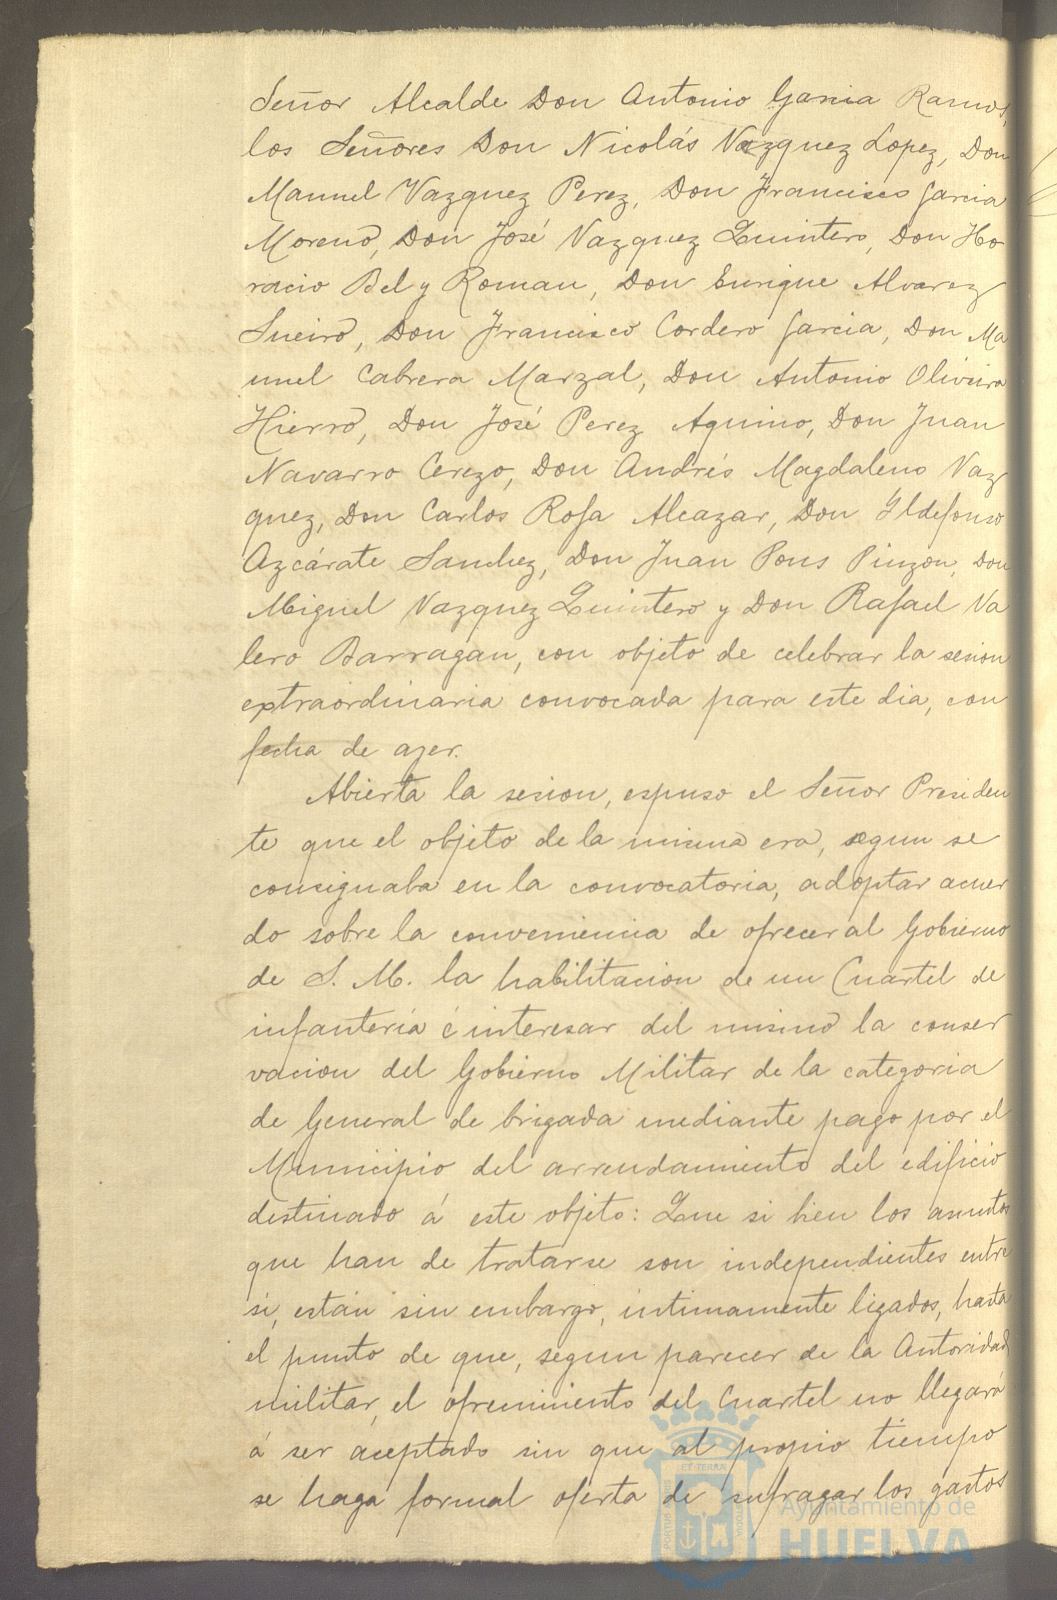 Señor Alcalde Don Antonio Garcia Ramos,
los Señores Don Nicolás Vazquez Lopez, Don
Manuel Vazquez Perez, Don Francisco Garcia
Moreno, Don José Vazquez Quintero, Don Ho
racio Bel y Roman, Don Enrique Alvarez
Sueiro, Don Francisco Cordero Garcia, Don Ma
nuel Cabrera Marzal, Don Antonio Oliveira
Hierro, Don José Perez Aquino, Don Juan
Navarro Cerezo, Don Andrés Magdaleno Vaz
quez, Don Carlos Rofa Alcazar, Don Yldefonso
Azcárate Sanchez, Don Juan Pons Pinzon, Don
Miguel Vazquez Quintero y Don Rafael Va
lero Barragan, con objeto de celebrar la sesion
extraordinaria convocada para este dia, con
fecha de ayer.
Abierta la sesion, espuso el Señor Presiden
te que el objeto de la misma era, segun se
consignaba en la convocatoria, adoptar acuer
do sobre la conveniencia de ofrecer al Gobierno
de S. M. la habilitacion de un Cuartel de
infantería é interesar del mismo la conser
vacion del Gobierno Militar de la categoria
de General de brigada mediante pago por el
Municipio del arrendamiento del edificio
destinado á este objeto: Que si bien los asuntos
que han de tratarse son independientes entre
si, están sin embargo, íntimamente ligados, hasta
el punto de que, segun parecer de la Autoridad
militar, el ofrecimiento del Cuartel no llegará
á ser aceptado sin que al propio tiempo
se haga formal oferta de sufragar los gastos
Ayuntamiento de
HUELVA